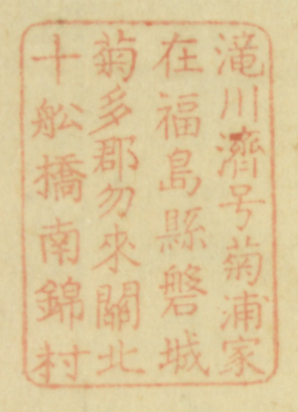 滝川濟号菊浦家
在福島縣磐城
菊多郡勿來關北
十舩橋南錦村